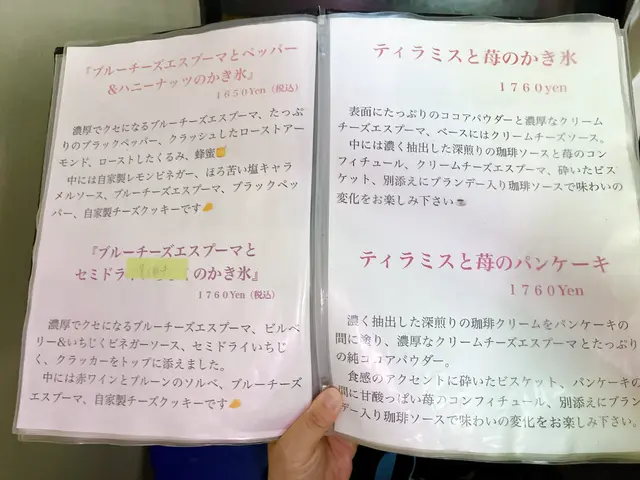 『ブルーチーズエスプーマとペッパー
&ハニーナッツのかき氷』
1650Yen (税込)
濃厚でクセになるブルーチーズエスプーマ、たっぷ
りのブラックペッパー、クラッシュしたローストアー
モンド、ローストしたくるみ、蜂蜜🍯
中には自家製レモンビネガー、ほろ苦い塩キャラ
メルソース、ブルーチーズエスプーマ、ブラックペッ
パー、自家製チーズクッキーです🧀
『ブルーチーズエスプーマと
セミドラ のかき氷』
1760Yen (税込)
濃厚でクセになるブルーチーズエスプーマ、ビルベ
リー&いちじくビネガーソース、セミドライいちじ
く、クラッカーをトップに添えました。
中には赤ワインとプルーンのソルベ、ブルーチーズ
エスプーマ、自家製チーズクッキーです🧀
ティラミスと苺のかき氷
1760yen
表面にたっぷりのココアパウダーと濃厚なクリーム
チーズエスプーマ、ベースにはクリームチーズソース。
中には濃く抽出した深煎りの珈琲ソースと苺のコン
フィチュール、クリームチーズエスプーマ、砕いたビス
ケット、別添えにブランデー入り珈琲ソースで味わいの
変化をお楽しみ下さい☕
ティラミスと苺のパンケーキ
1760Yen
濃く抽出した深煎りの珈琲クリームをパンケーキの
間に塗り、濃厚なクリームチーズエスプーマとたっぷり
の純ココアパウダー。
食感のアクセントに砕いたビスケット、パンケーキの
間に甘酸っぱい苺のコンフィチュール、別添えにブラン
デー入り珈琲ソースで味わいの変化をお楽しみ下さい。